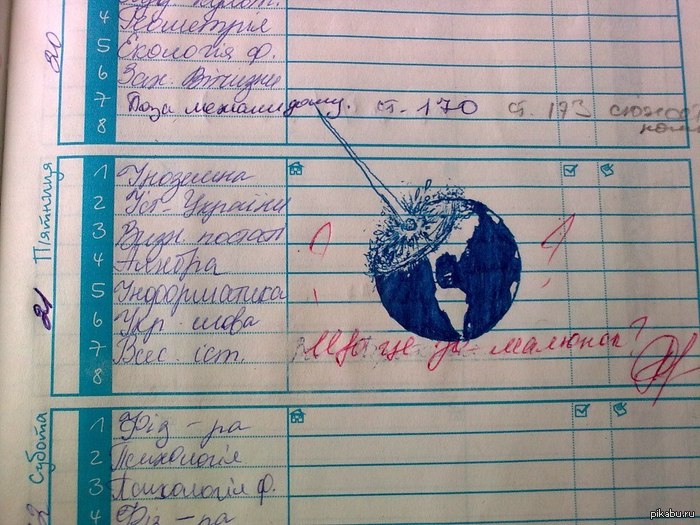 4 Геометрія
5 Екологія ф.
6 Зах. Вітчизни
7 Поза межами дому. ст. 170 ст. 173
8
20
П'ятниця
21
1 Іноземна
2 Іст. України
3 Видн. постаті
4 Алгебра
5 Інформатика
6 Укр. мова
7 Всес. іст.
8
Що це за малюнок?
Субота
1 Фіз-ра
2 Психологія
3 Психологія ф.
4 Фіз-ра
pikabu.ru